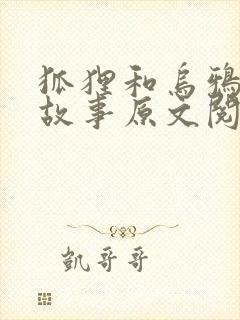 狐狸和乌鸦
故事原文阅
凯哥哥